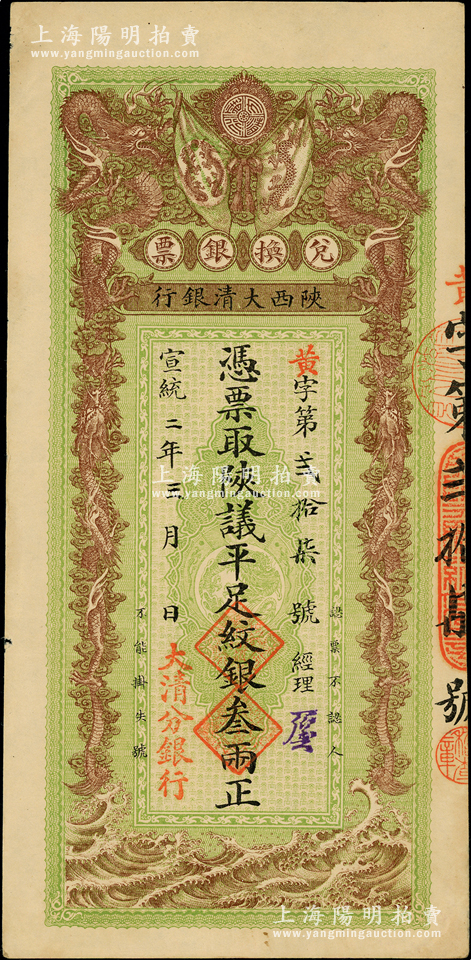 上海陽明拍賣
www.yangmingauction.com
兌換銀票
陝西大清銀行
認票不認人
黃字第貳拾柒號 經理
憑票取陝議平足紋銀叁兩正
宣統二年三月 日
大清分銀行
不能掛失號
黃字第貳拾柒號
上海陽明拍賣
www.yangmingauction.com
上海陽明拍賣
www.yangmingauction.com